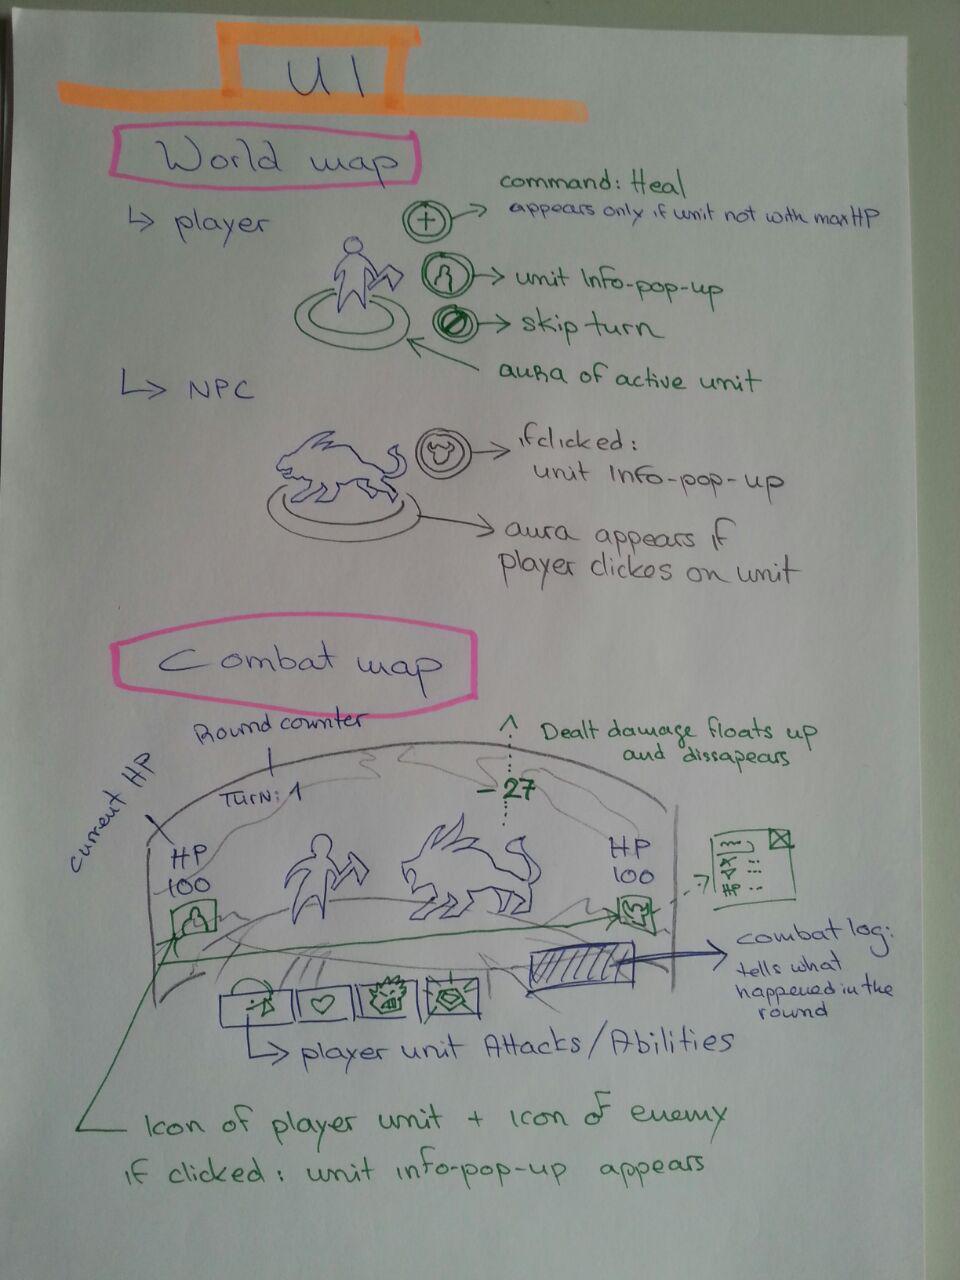 UI
World map
↳ player
command: Heal
appears only if unit not with maxHP
unit Info-pop-up
skip turn
aura of active unit
↳ NPC
if clicked:
unit Info-pop-up
aura appears if
player clickes on unit
Combat map
Round counter
Current HP
Dealt damage floats up
and dissapears
Turn: 1
- 27
HP
100
HP
100
HP --
combat log:
tells what
happened in the
round
↳ player unit Attacks/Abilities
Icon of player unit + Icon of enemy
if clicked: unit info-pop-up appears